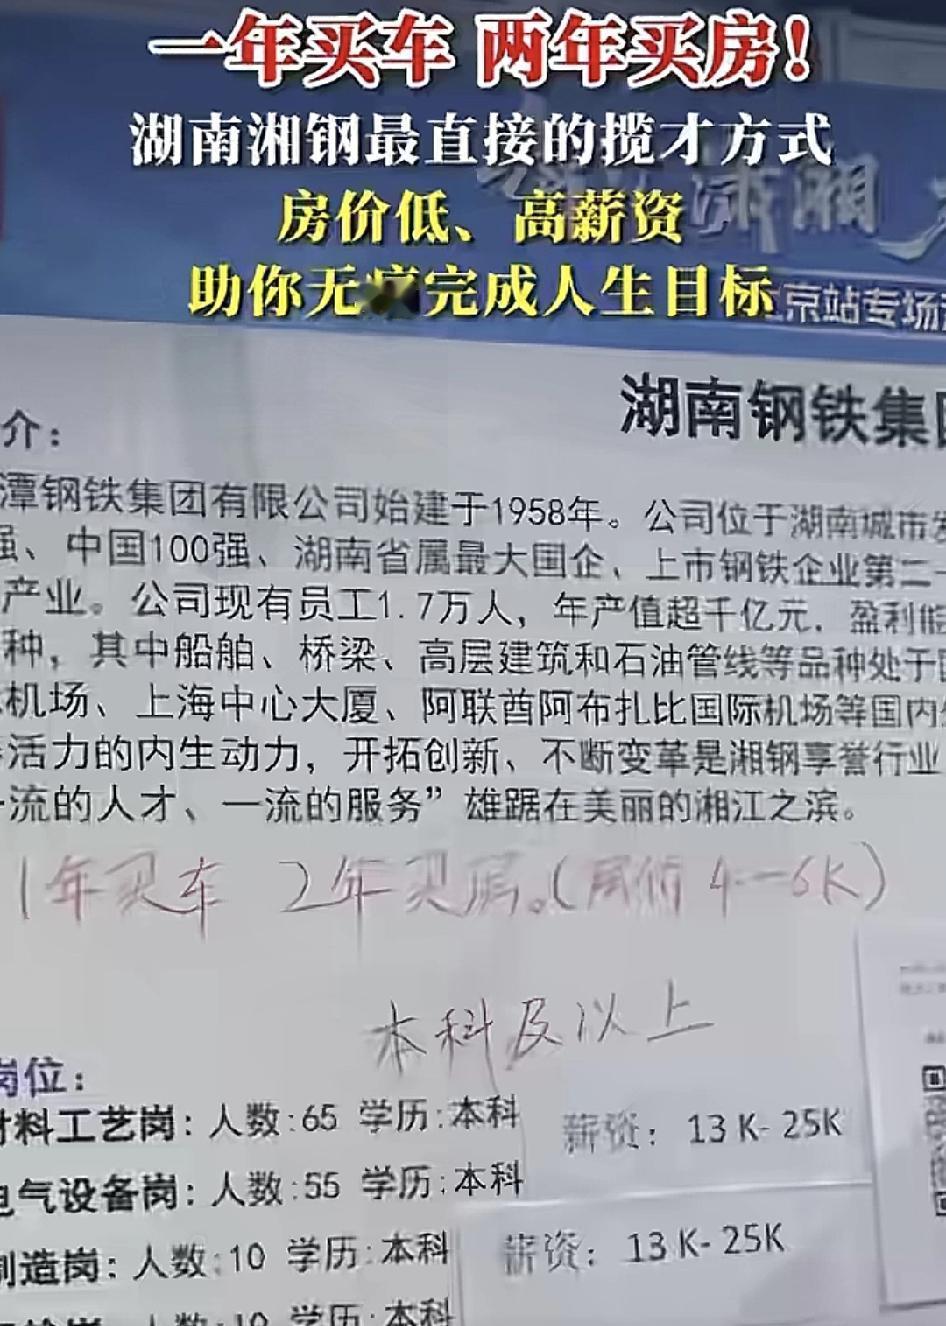 一年买车 两年买房！
湖南湘钢最直接的揽才方式
房价低、高薪资
助你无完成人生目标
潇湘
京站专场
湖南钢铁集
介：
潭钢铁集团有限公司始建于1958年。公司位于湖南城市
强、中国100强、湖南省属最大国企、上市钢铁企业第二
产业。公司现有员工1.7万人，年产值超千亿元，盈利能
种，其中船舶、桥梁、高层建筑和石油管线等品种处于
机场、上海中心大厦、阿联酋阿布扎比国际机场等国内
活力的内生动力，开拓创新、不断变革是湘钢享誉行业
流的人才、一流的服务”雄踞在美丽的湘江之滨。
1年买车 2年买房。（房价4-6K）
本科及以上
岗位：
材料工艺岗：人数:65 学历:本科 薪资：13K-25K
电气设备岗：人数:55 学历:本科
制造岗：人数:10 学历:本科 薪资：13K-25K
人数:10 学历:本科